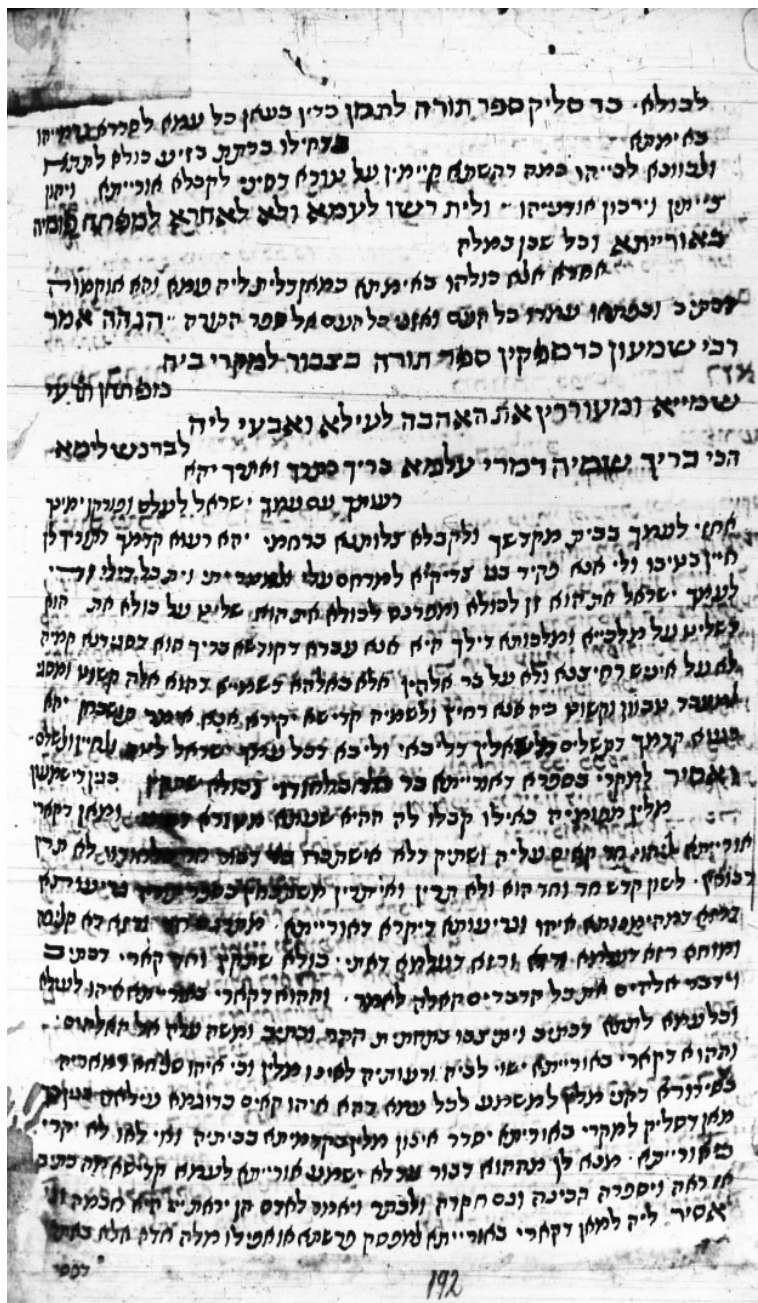 לכולא. כד סליק ספר תורה לתמן כדין בעאן כל עמא לסדרא גרמייהו
באימתא בדחילו ברתת בזיע כולא לתתא
ולכוונא לבייהו כמה דהשתא קיימין על טורא דסיני לקבלא אורייתא ויהון
צייתין וירכון אודנייהו ולית רשו לעמא ולא לאחרא למפתח פומיה
באורייתא וכל שכן במלה
אחרא אלא כולהו באימתא כמאן דלית ליה פומא והא אוקמוה
דכתיב ובפתחו עמדו כל העם ואזני כל העם אל ספר התורה הגהה אמר
רבי שמעון כד מפקין ספר תורה בצבור למקרי ביה
מפתחן תרעי
שמייא ומעוררין את האהבה לעילא ואבעי ליה
לבר נש לימא
הכי בריך שמיה דמרי עלמא בריך כתרך ואתרך יהא
רעותך עם עמך ישראל לעלם ופורקן ימינך
אחזי לעמך בבית מקדשך ולקבלא צלותנא ברחמי יהא רעוא קדמך דתוריך לן
חיין בטיבו ולי אנא פקיד בגו צדיקיא למרחם עלי ולמנטר יתי וית כל דילי ודי
לעמך ישראל את הוא זן לכולא ומפרנס לכולא את הוא שליט על כולא את הוא
דשליט על מלכייא ומלכותא דילך היא אנא עבדא דקודשא בריך הוא דסגידנא קמיה
לא על אינש רחיצנא ולא על בר אלהין אלא באלהא דשמייא דהוא אלה קשוט ומסגי
למעבד טבוון וקשוט ביה אנא רחיץ ולשמיה קדישא יקירא אנא אימר תושבחן יהא
רעוא קדמך דתשלים משאלין דלבאי וליבא דכל עמך ישראל לטב ולחיין ולשלם
ואסיר למקרי בספרא דאורייתא בר חד בלחודוי וכולא שתקין כגין דישמעון
מלין מפומיה כאילו קבלו לה ההיא שעתא מטורא דסיני ומאן דקארי
אורייתא ליהוי חד קאים עליה ושתיק דלא אישתכח בר דבור חד בלחודוי לא תרין
דבורין. לשון קדש חד וחד הוא ולא תרין ואי תרין משתכחין בספר תורה גריעותא
דרזא דמהימנותא איהו וגריעותא דיקרא דאורייתא
דבור אלהים את כל הדברים האלה לאמר. וההוא דקארי באורייתא איהו לעילא
וכל עמא לתתא דכתיב ויתיצבו בתחתית ההר וכתיב ומשה עלה אל האלהים:
וההוא דקארי באורייתא ישוי לביה ורעותיה לאינון מלין וכי איהו שליחא דמאריה
בסידורא דהני מלין למשמע לכל עמא דהא איהו קאים כדוגמא עילאה בגין כך
מאן דסליק למקרי באוריתא יסדר אינון מלין בקדמיתא בביתיה ואי לאו לא יקרי
באורייתא. מנא לן מההוא דבור עד לא ישמע אורייתא לעמא קדישא מה כתיב
אז ראה ויספרה הכינה וגם חקרה ולבתר ויאמר לאדם הן יראת יי היא חכמה וגו
אסיר ליה למאן דקארי באורייתא למפסק פרשתא או אפילו מלה חדא אלא באתר
דפסק
192